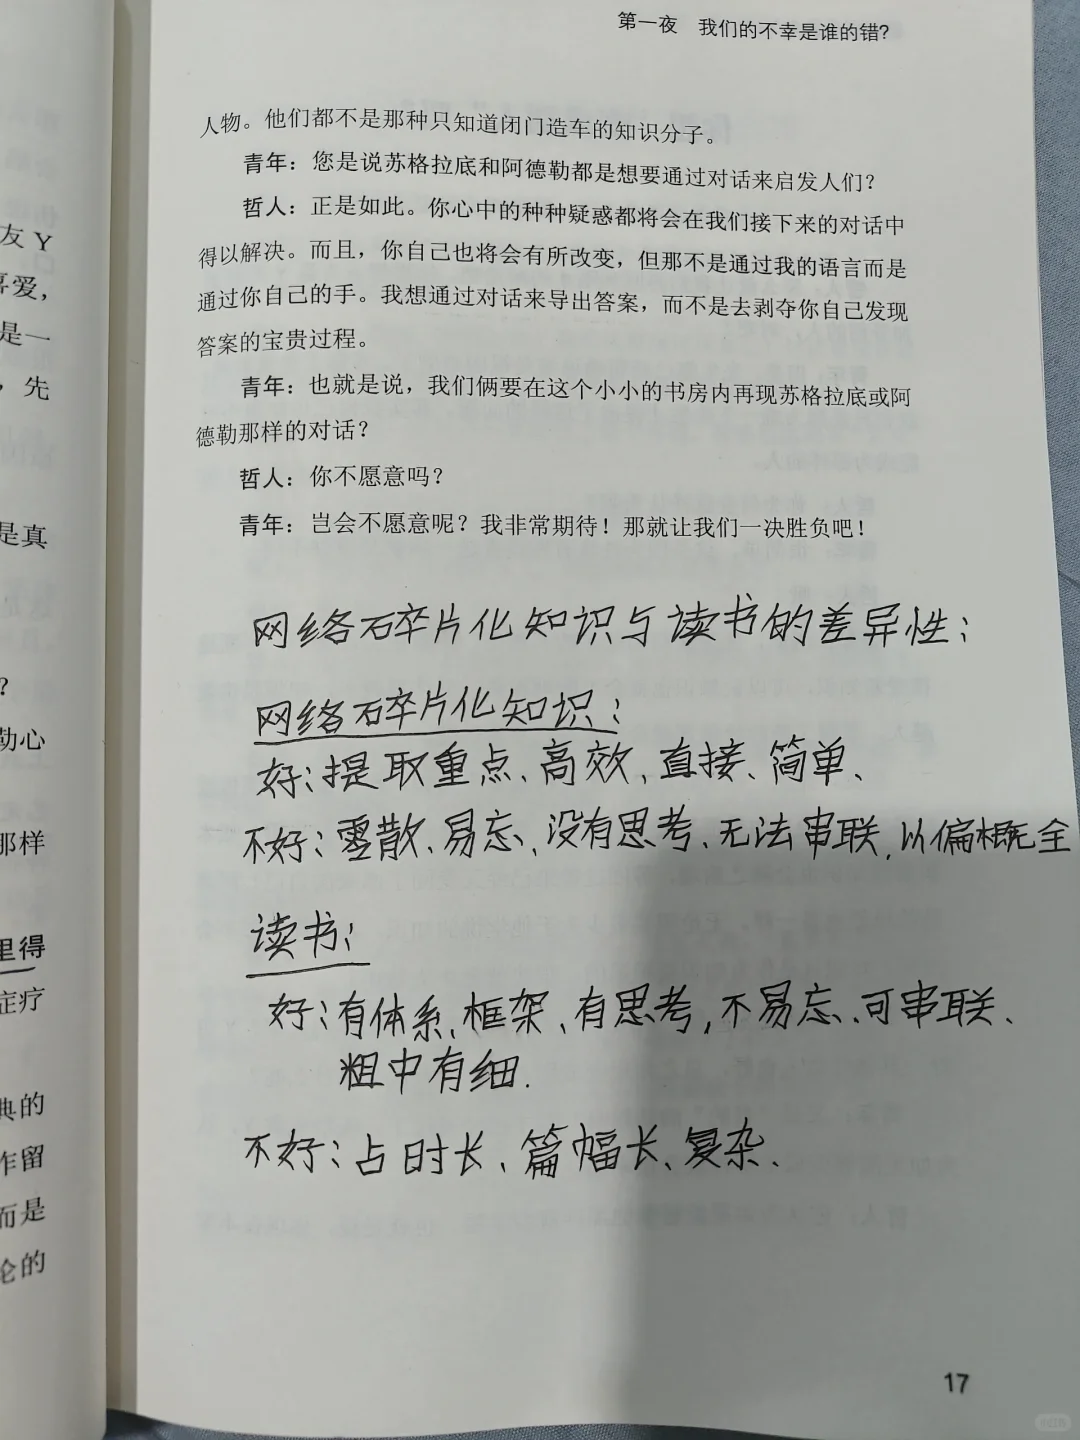 友Y
喜爱，
是一
，先
是真
？
勒心
那样
里得
症疗
典的
作留
而是
论的
第一夜 我们的不幸是谁的错？
人物。他们都不是那种只知道闭门造车的知识分子。
青年：您是说苏格拉底和阿德勒都是想要通过对话来启发人们？
哲人：正是如此。你心中的种种疑惑都将会在我们接下来的对话中
得以解决。而且，你自己也将会有所改变，但那不是通过我的语言而是
通过你自己的手。我想通过对话来导出答案，而不是去剥夺你自己发现
答案的宝贵过程。
青年：也就是说，我们俩要在这个小小的书房内再现苏格拉底或阿
德勒那样的对话？
哲人：你不愿意吗？
青年：岂会不愿意呢？我非常期待！那就让我们一决胜负吧！
网络碎片化知识与读书的差异性：
网络碎片化知识：
好：提取重点、高效、直接、简单、
不好：零散、易忘、没有思考、无法串联，以偏概全
读书：
好：有体系、框架、有思考，不易忘、可串联、
粗中有细.
不好：占时长、篇幅长、复杂、
17